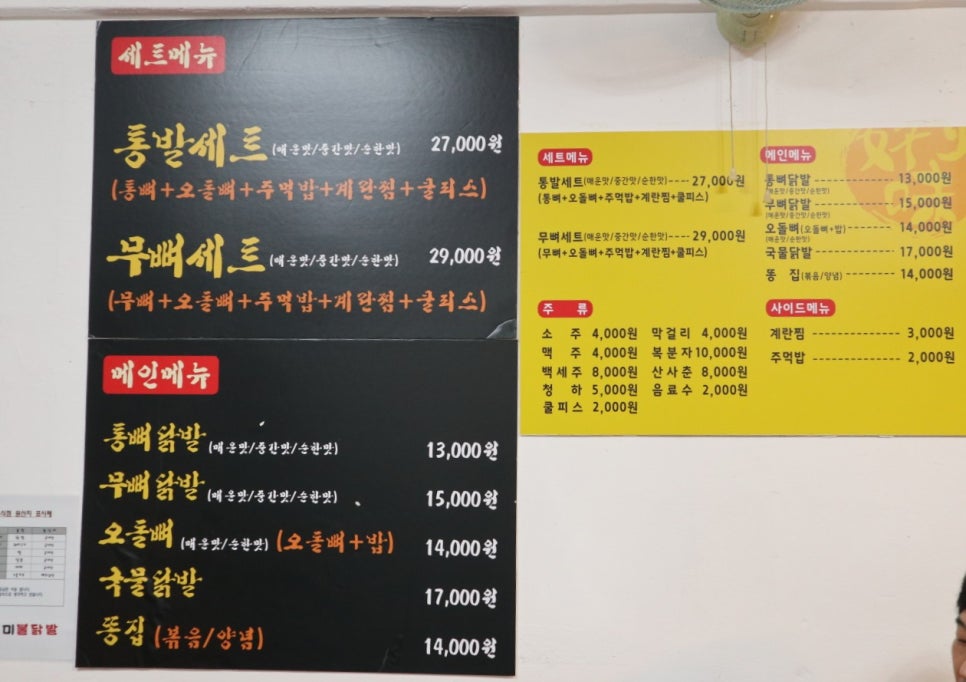 세트메뉴
통발세트(매운맛/중간맛/순한맛) 27,000원
(통뼈+오돌뼈+주먹밥+계란찜+쿨피스)
무뼈세트(매운맛/중간맛/순한맛) 29,000원
(무뼈+오돌뼈+주먹밥+계란찜+쿨피스)
메인메뉴
통뼈닭발(매운맛/중간맛/순한맛) 13,000원
무뼈닭발(매운맛/중간맛/순한맛) 15,000원
오돌뼈(매운맛/순한맛)(오돌뼈+밥) 14,000원
국물닭발 17,000원
똥집(볶음/양념) 14,000원
세트메뉴
통발세트(매운맛/중간맛/순한맛)----27,000원
(통뼈+오돌뼈+주먹밥+계란찜+쿨피스)
무뼈세트(매운맛/중간맛/순한맛)----29,000원
(무뼈+오돌뼈+주먹밥+계란찜+쿨피스)
메인메뉴
통뼈닭발 13,000원
(매운맛/중간맛/순한맛)
무뼈닭발 15,000원
(매운맛/중간맛/순한맛)
오돌뼈(오돌뼈+밥) 14,000원
(매운맛/순한맛)
국물닭발 17,000원
똥 집(볶음/양념) 14,000원
주 류
소 주 4,000원 막걸리 4,000원
맥 주 4,000원 복분자 10,000원
백세주 8,000원 산사춘 8,000원
청 하 5,000원 음료수 2,000원
쿨피스 2,000원
사이드메뉴
계란찜 3,000원
주먹밥 2,000원
미불닭발